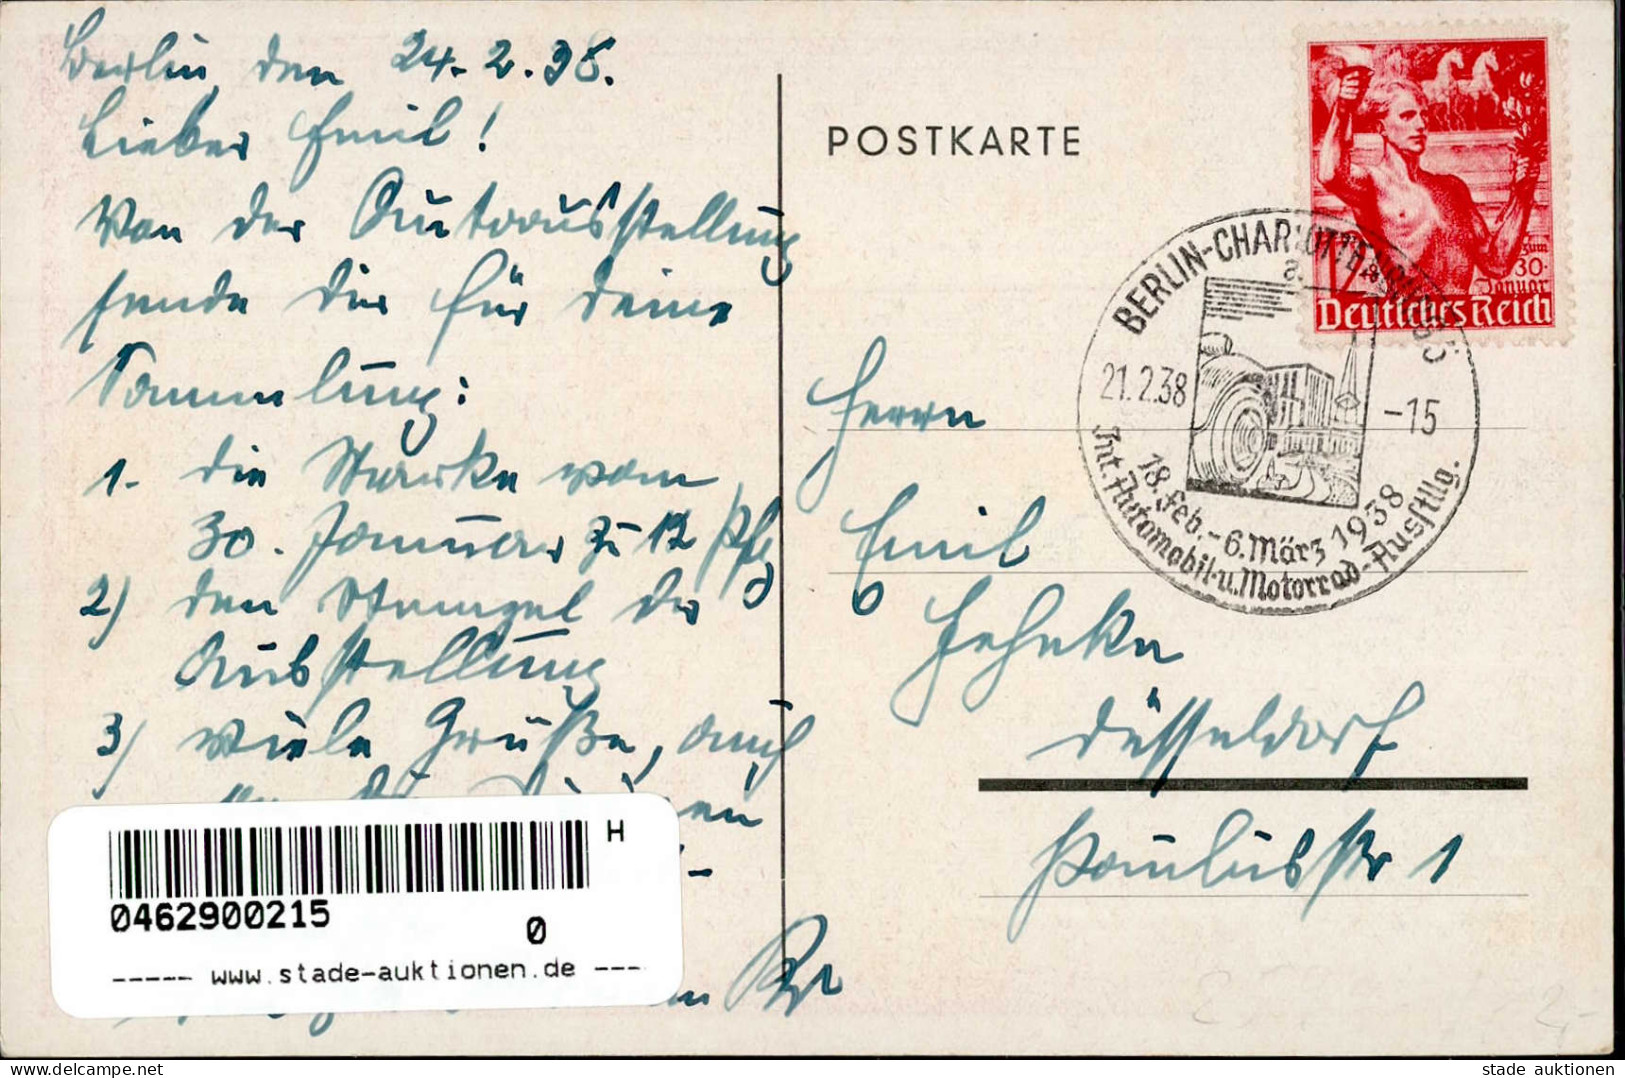 Berlin, den 24.2.38.
Lieber Emil!
Von der Autoausstellung
sende dir für deine
Sammlung:
1. die Marke vom
30. Januar zu 12 Pfg
2) den Stempel der
Ausstellung
3) viele Grüße, auch
POSTKARTE
zum
30.
Januar
12
Deutsches Reich
BERLIN-CHARLOTTENBURG 5
a
21.2.38
-15
18. Feb. - 6. März 1938
Int. Automobil- u. Motorrad-Ausstllg.
Herrn
Emil
Jehnke
Düsseldorf
Paulusstr 1
H
0462900215
0
----- www.stade-auktionen.de ----
stade auktionen